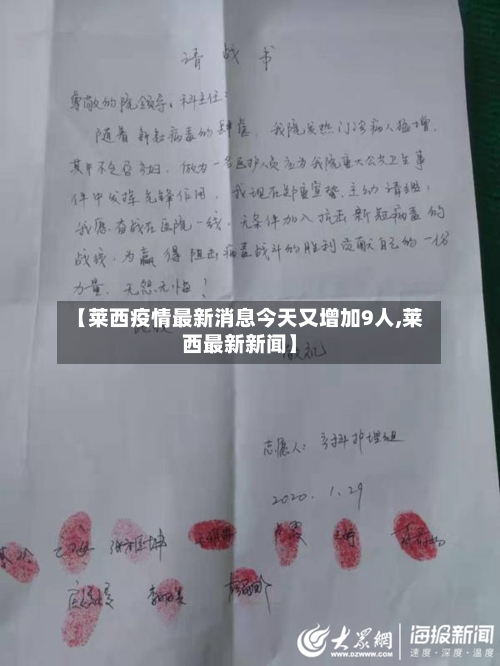 请战书
尊敬的院领导、科主任：
随着新冠病毒的肆虐，我院发热门诊病人猛增，
其中不乏孕妇，做为一名医护人员应为我院重大公共卫生事
件中发挥先锋作用，我现在郑重宣誓，主动请缨，
我愿奋战在医院一线，无条件加入抗击新冠病毒的
战线，为赢得阻击病毒战斗的胜利贡献自己的一份
力量，无怨无悔！
【莱西疫情最新消息今天又增加9人,莱
西最新新闻】
敬礼
志愿人：
2020.1.29
大众網
WWW.DZWWW.COM
海报新闻
速度·深度·温度